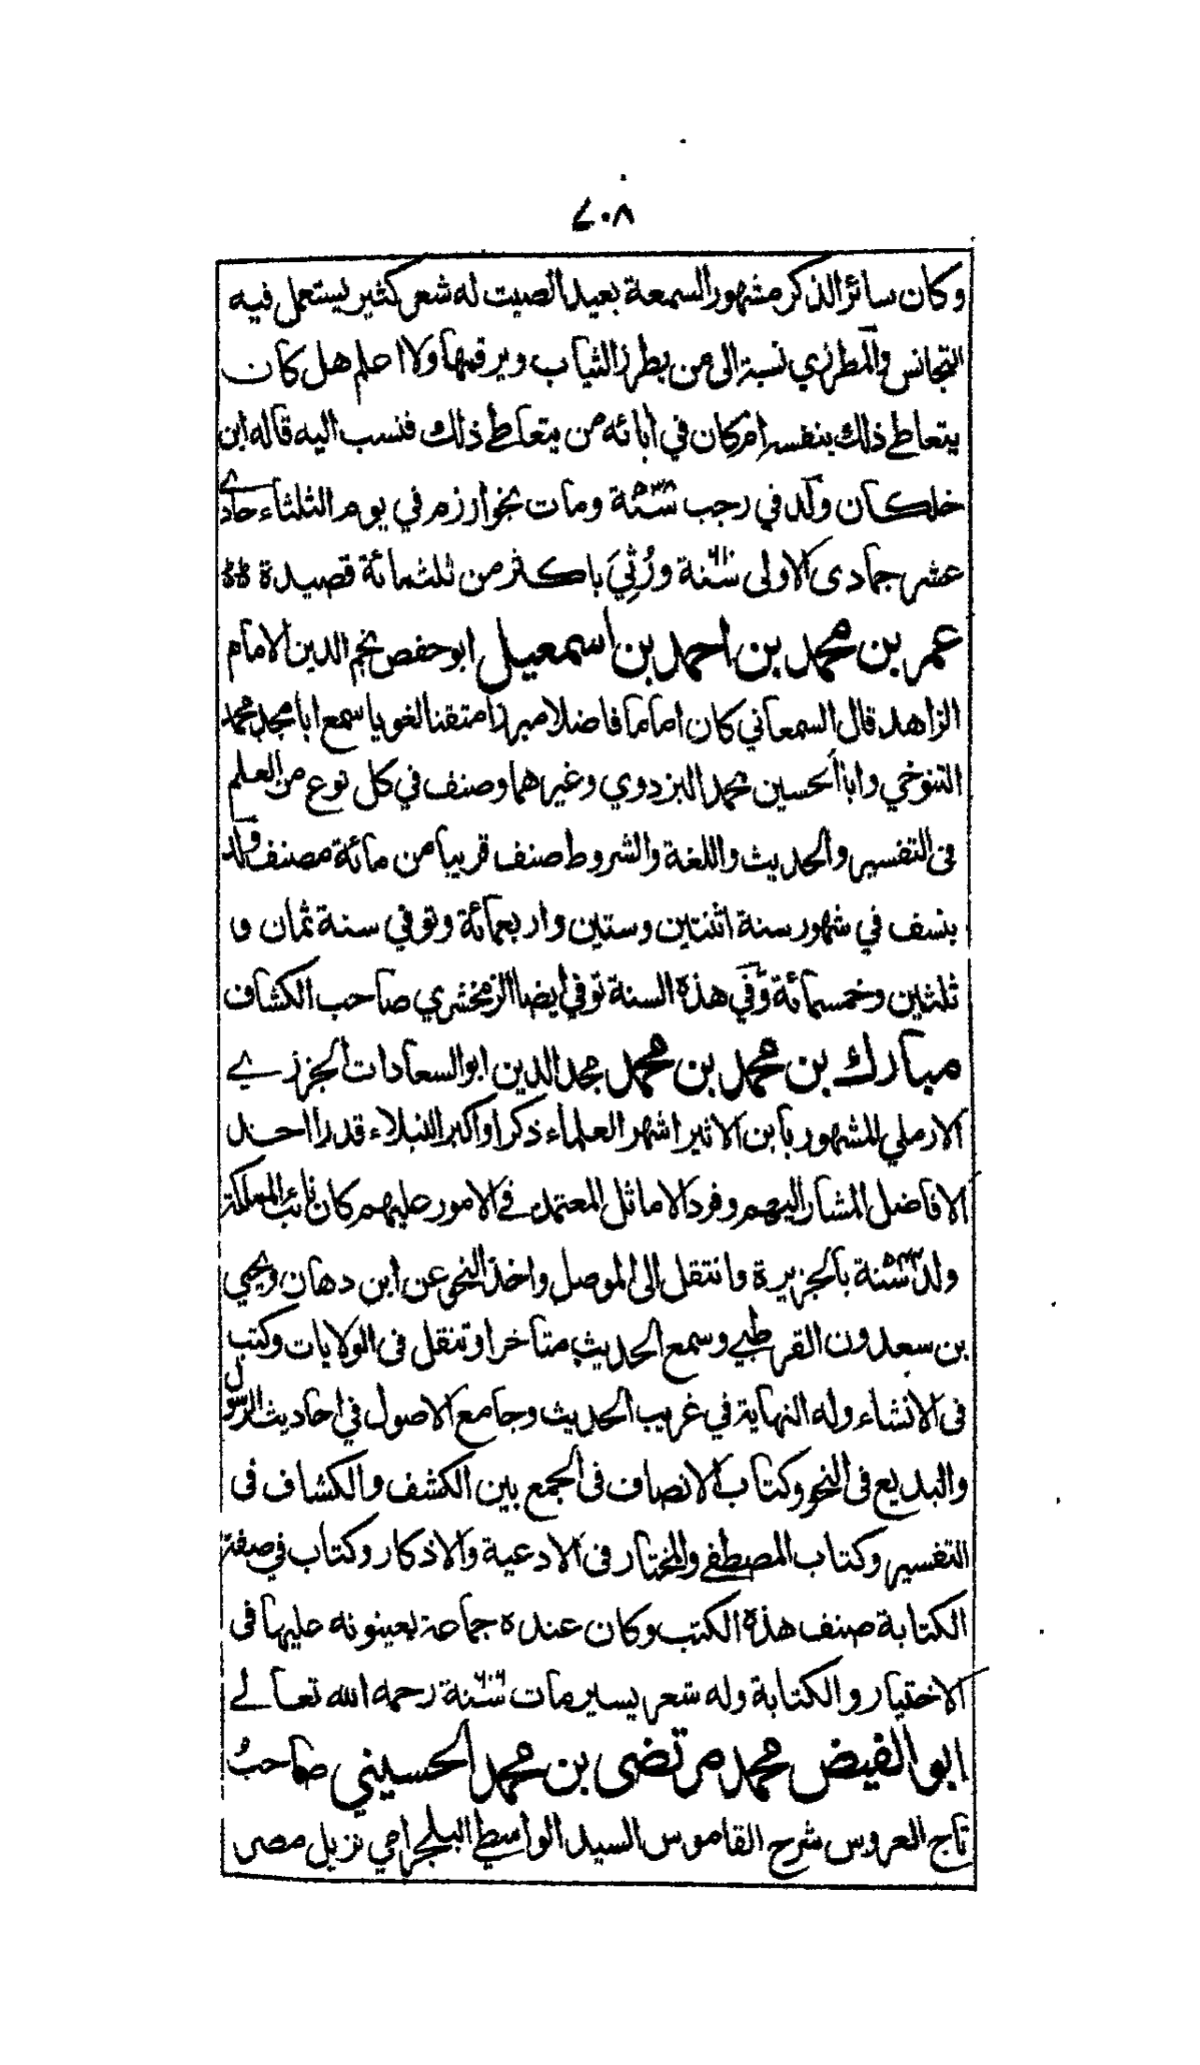 ٧٠٨
وكان سائر الذكر مشهور السمعة بعيد الصيت له شعر كثير يستعمل فيه
التجانس والمطرزي نسبة الى من يطرز الثياب ويرقمها ولا اعلم هل كان
يتعاطى ذلك بنفسه ام كان في ابائه من يتعاطى ذلك فنسب اليه قاله ابن
خلكان ولد في رجب سنة ٥٣٨ ومات بخوارزم في يوم الثلثاء حادي
عشر جمادى الاولى سنة ٦١٠ ورُثِيَ باكثر من ثلثمائة قصيدة
عمر بن محمد بن احمد بن اسمعيل ابو حفص نجم الدين الامام
الزاهد قال السمعاني كان اماما فاضلا مبرزا متقنا لغويا سمع ابا محمد محمد
التنوخي وابا الحسين محمد البزدوي وغيرهما وصنف في كل نوع من العلم
فى التفسير والحديث واللغة والشروط صنف قريبا من مائة مصنف ولد
بنسف في شهور سنة اثنتين وستين واربعمائة وتوفي سنة ثمان و
ثلثين وخمسمائة وفي هذه السنة توفي ايضا الزمخشري صاحب الكشاف
مبارك بن محمد بن محمد مجد الدين ابو السعادات الجزري
الارملي المشهور بابن الاثير اشهر العلماء ذكرا واكبر النبلاء قدرا احد
الافاضل المشار اليهم وفرد الاماثل المعتمد في الامور عليهم كان نائب المملكة
ولد سنة ٥٤٤ بالجزيرة وانتقل الى الموصل واخذ النحو عن ابن دهان ويحيى
بن سعدون القرطبي وسمع الحديث متاخرا وتنقل فى الولايات وكتب
فى الانشاء وله النهاية في غريب الحديث وجامع الاصول في احاديث الرسول
والبديع فى النحو وكتاب الانصاف فى الجمع بين الكشف والكشاف فى
التفسير وكتاب المصطفى والمختار فى الادعية والاذكار وكتاب في صنعة
الكتابة صنف هذه الكتب وكان عنده جماعة يعينونه عليها فى
الاختيار والكتابة وله شعر يسير مات سنة ٦٠٦ رحمه الله تعالى
ابو الفيض محمد مرتضى بن محمد الحسيني صاحبُ
تاج العروس شرح القاموس السيد الواسطي البلجرامي نزيل مصر